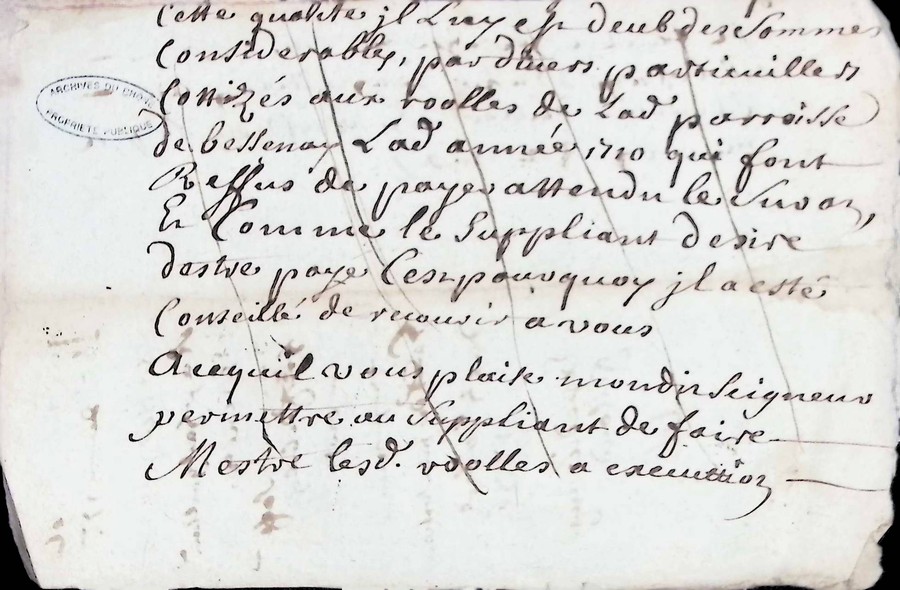 cette qualité jl Luy est deub des Sommes
Considerables, par divers particuillers
ARCHIVES DU RHÔNE
PROPRIÉTÉ PUBLIQUE
Cottizés aux roolles de Lad parroisse
de bessenay Lad année 1710 qui font
Reffus de payer attendu le
En Comme le Suppliant desire
destre payé Cest pourquoy jl a esté
Conseillé de recourir a vous
Acequil vous plaise mondit Seigneur
permettre au Suppliant de faire
Mestre lesd. roolles a executtion